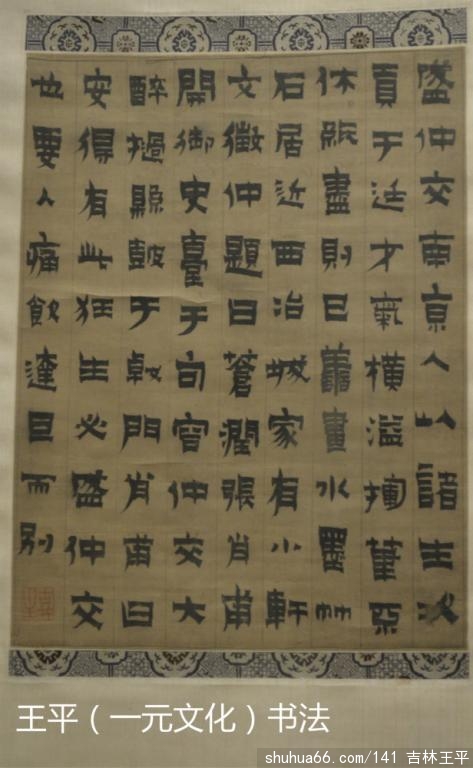 盛仲交南京人以諸生
貢于廷才氣橫溢筆
休紙盡則已善畫水墨竹
石居近西冶城家有小軒
文徵仲題曰蒼潤張肖甫
開御史臺于句容仲交大
醉撾縣鼓于戟門肖甫曰
安得有此狂生必盛仲交
也要入痛飲達旦而別
王平（一元文化）书法
shuhua66.com/141 吉林王平